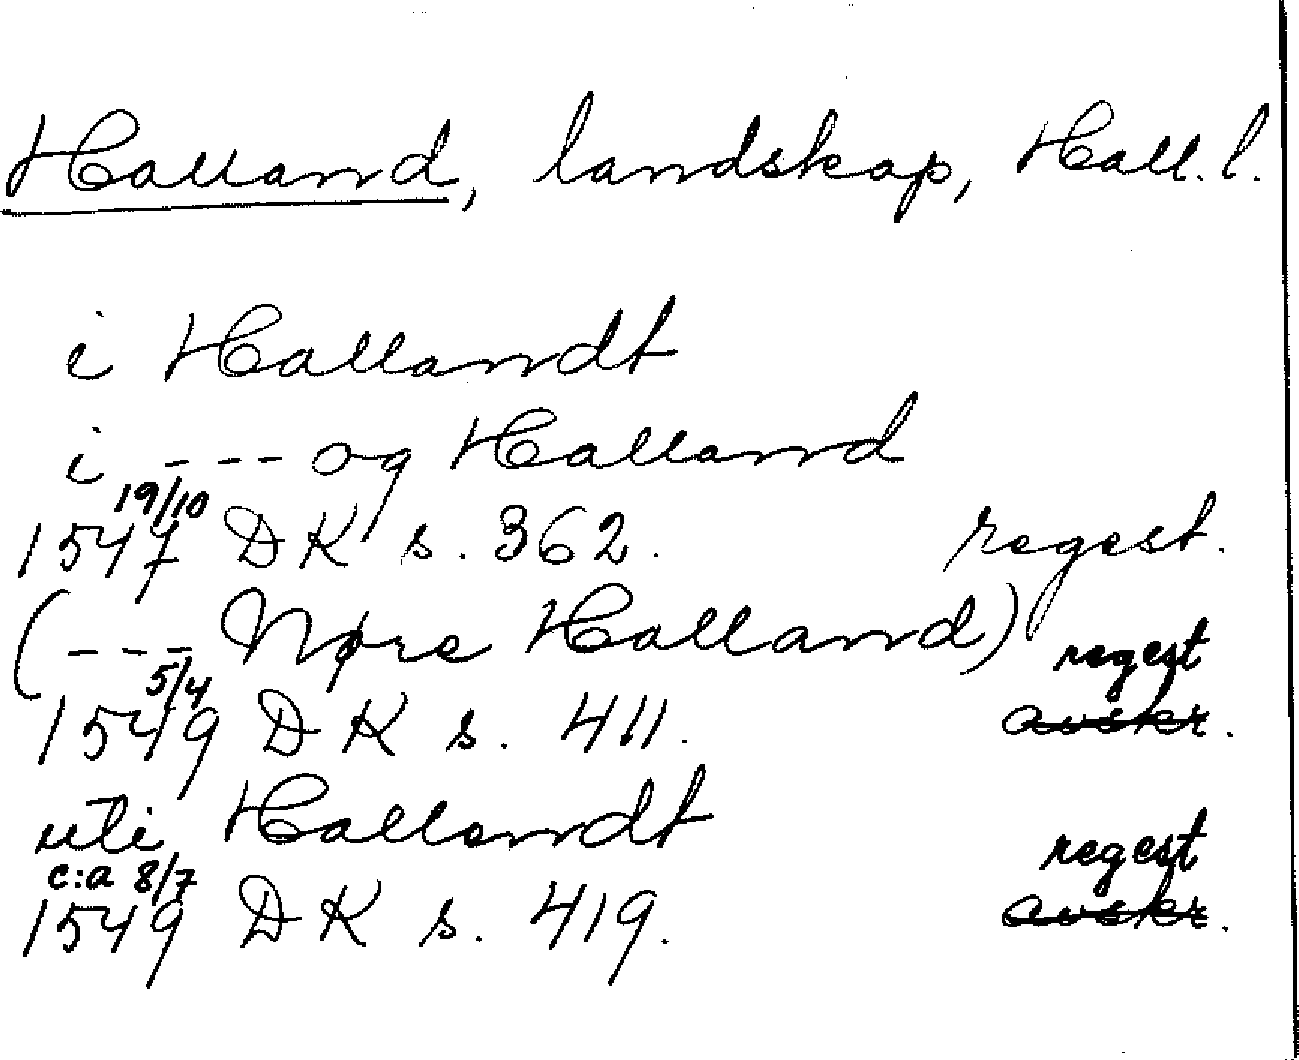 Halland, landskap, Hall. l.
i Hallandt
i --- og Halland
19/10
1547 DK s. 362. regest.
(--- Nøre Halland)
5/4 regest
1549 DK s. 411. avskr.
uti Hallandt
c:a 8/7 regest
1549 DK s. 419. avskr.